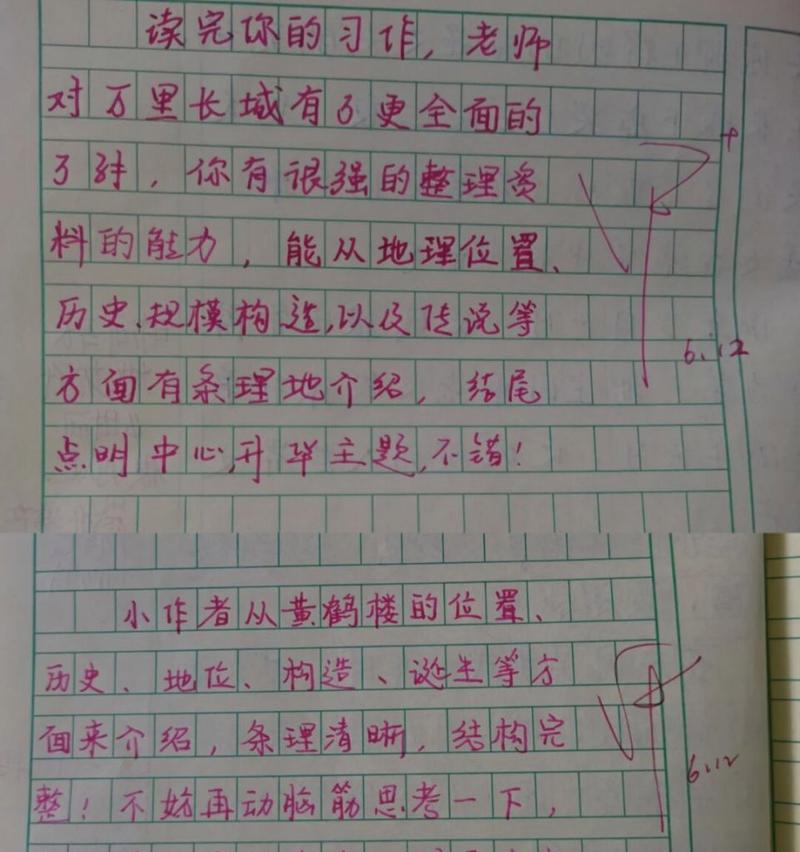 读完你的习作，老师
对万里长城有了更全面的
了解，你有很强的整理资
料的能力，能从地理位置、
历史、规模构造，以及传说等
方面有条理地介绍，结尾
点明中心，升华主题，不错！
6.12
小作者从黄鹤楼的位置、
历史、地位、构造、诞生等方
面来介绍，条理清晰，结构完
整！不妨再动脑筋思考一下，
6.12